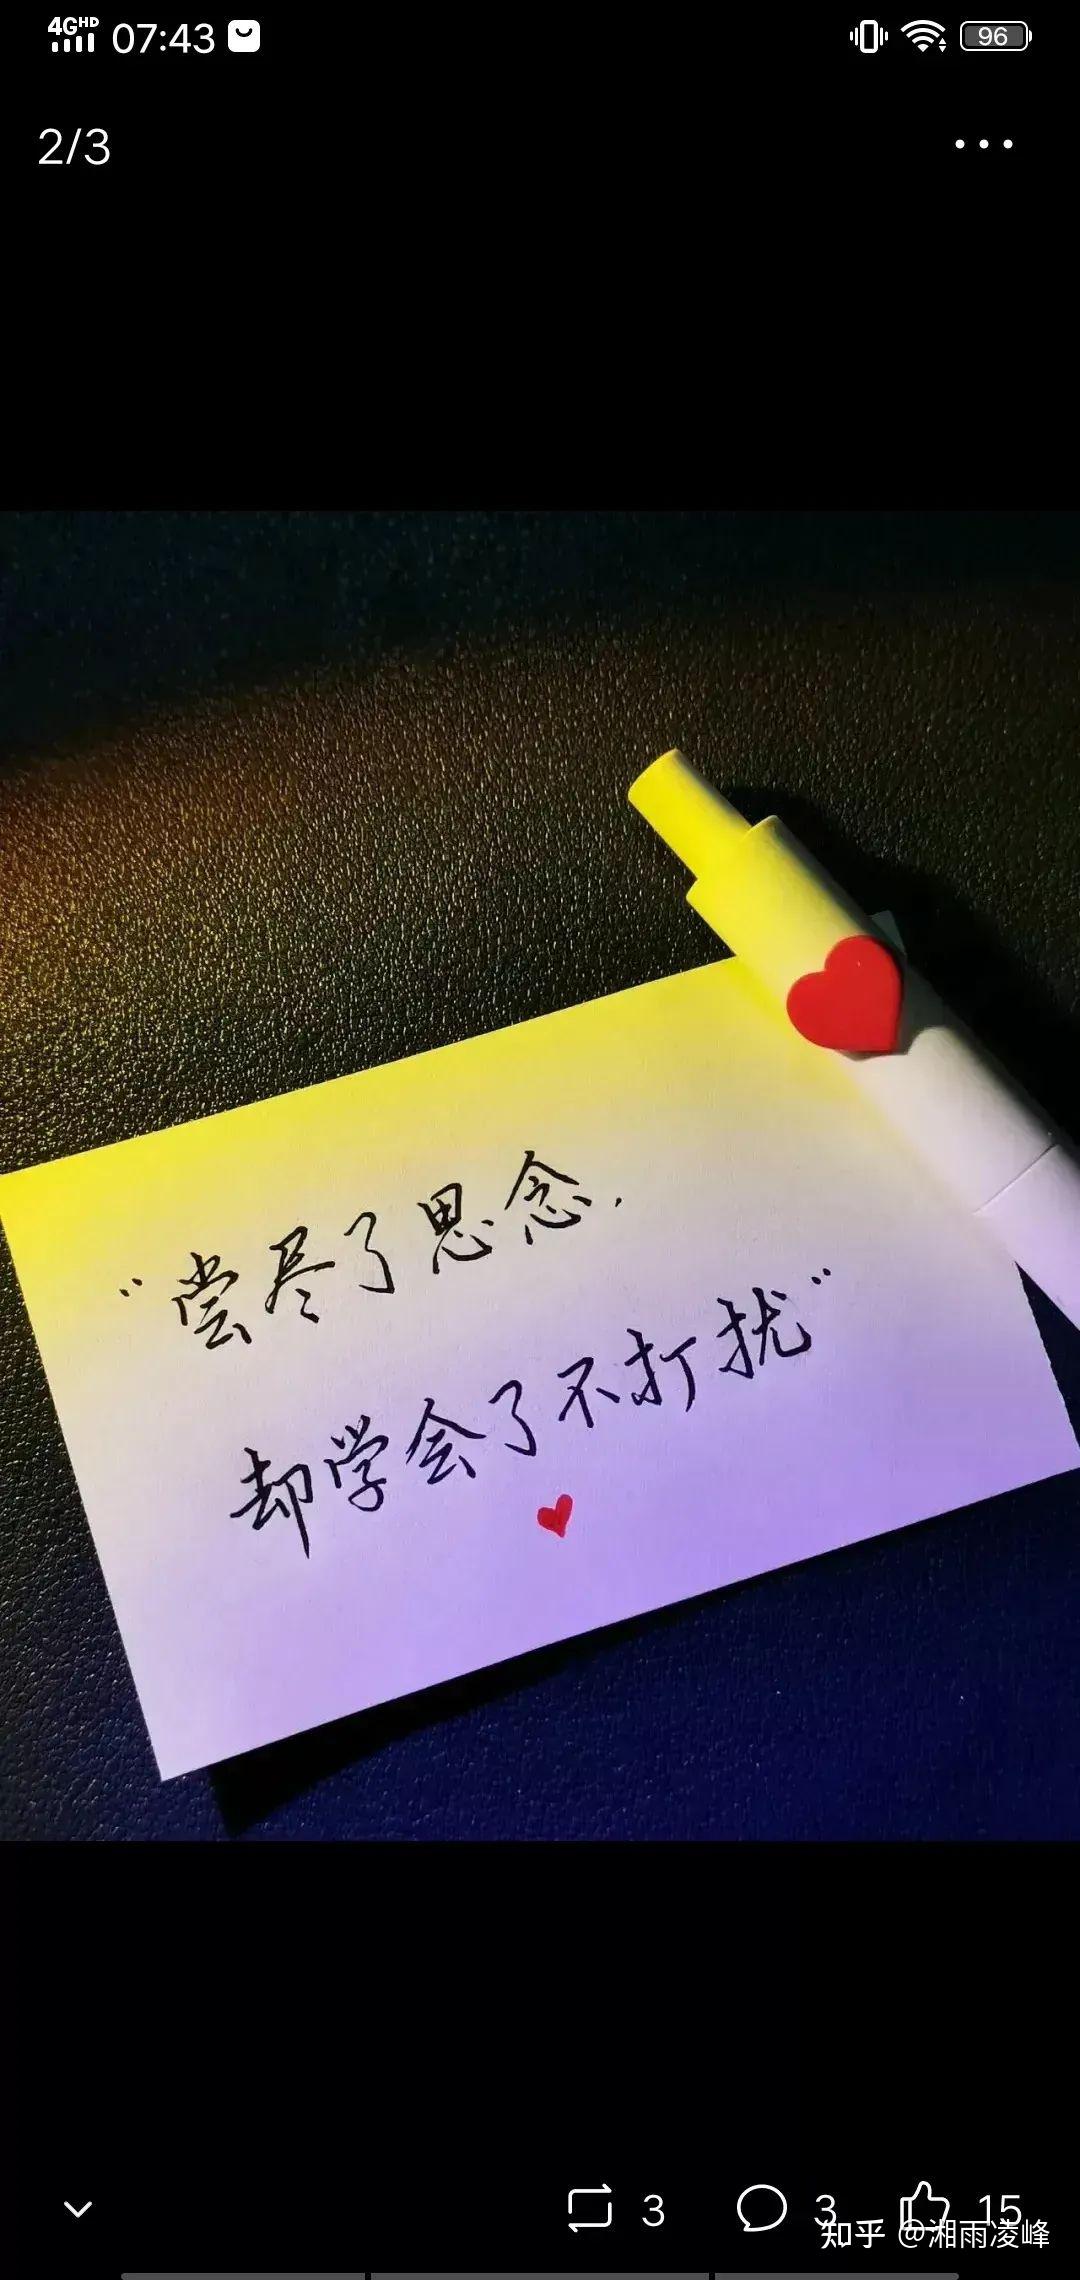 4GHD 07:43 96
2/3
“尝尽了思念.
却学会了不打扰”
3 3 15
知乎 @湘雨凌峰